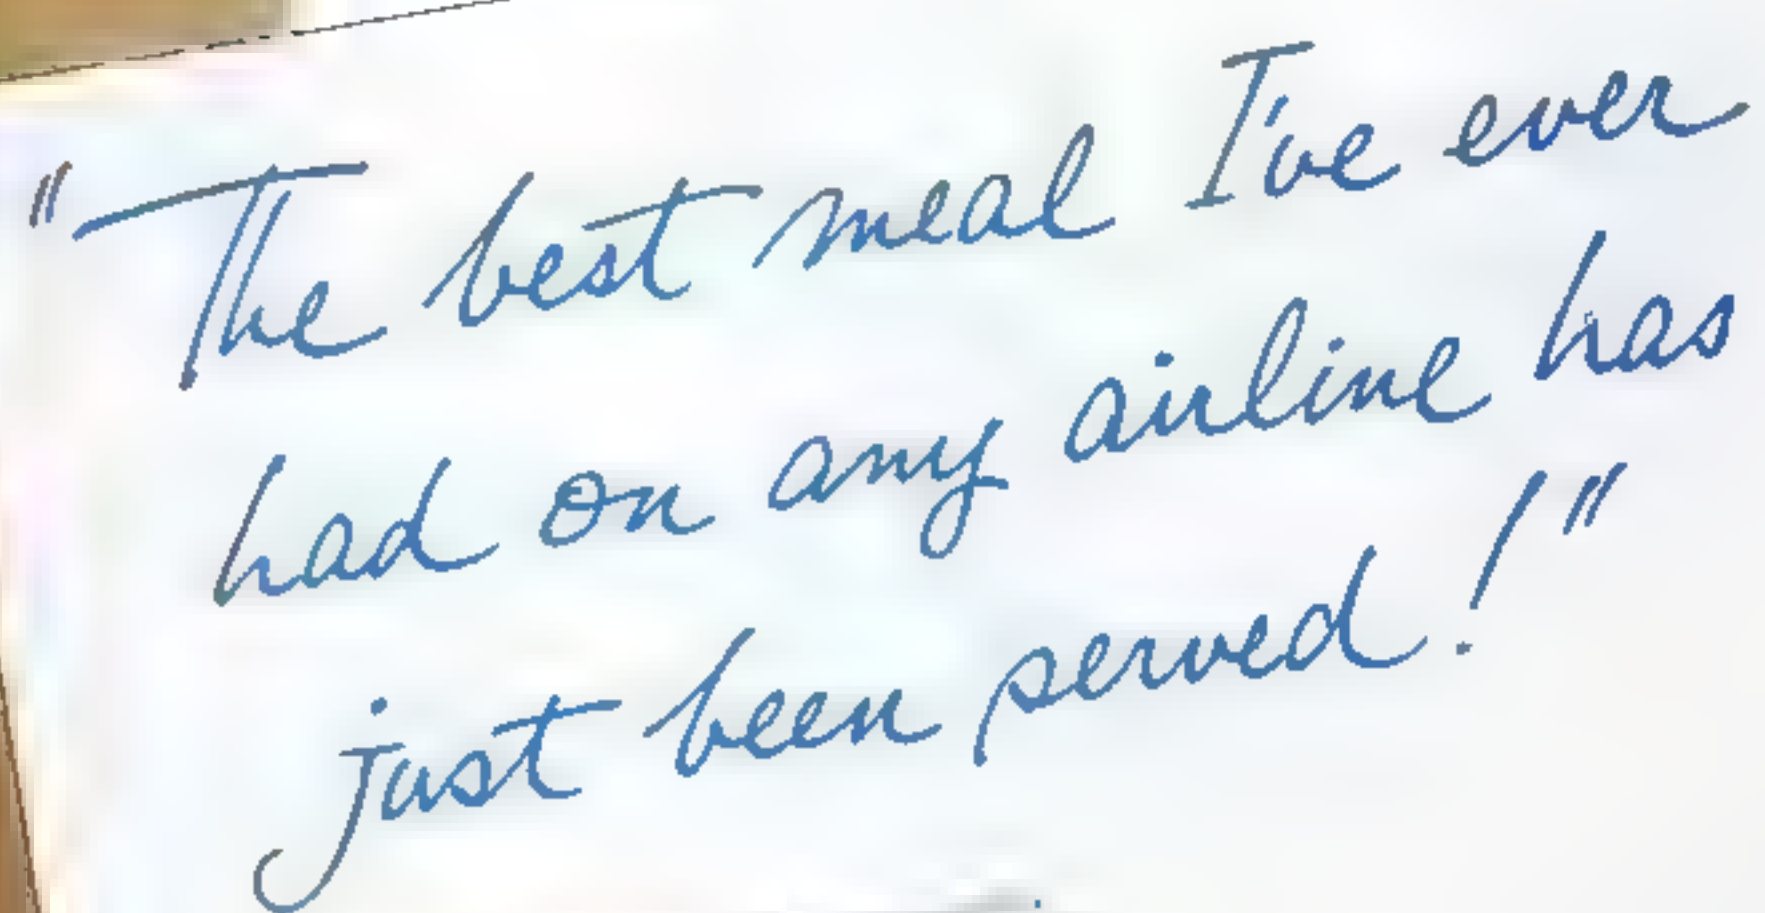 "The best meal I've ever
had on any airline has
just been served!"